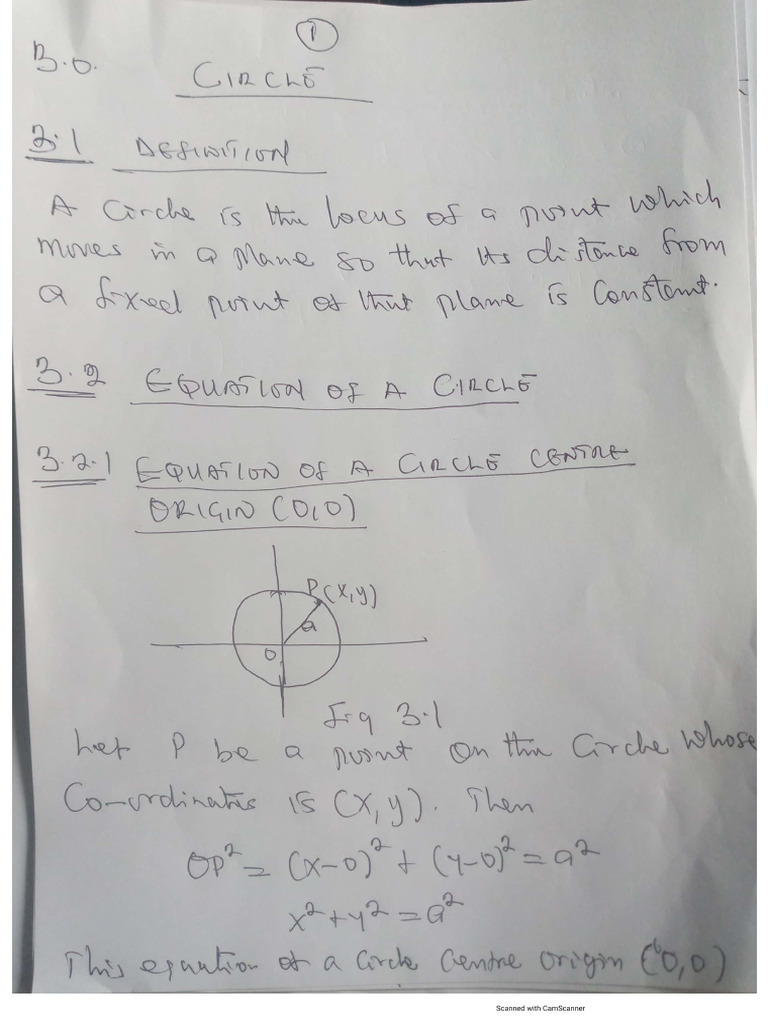 1
3.0. CIRCLE
3.1 DEFINITION
A Circle is the locus of a point which
moves in a plane so that its distance from
a fixed point of that plane is Constant.
3.2 EQUATION OF A CIRCLE
3.2.1 EQUATION OF A CIRCLE CENTRE
ORIGIN (0,0)
P(x,y)
a
0
Fig 3.1
Let P be a point on the Circle whose
Co-ordinates is (x,y). Then
OP² = (x-0)² + (y-0)² = a²
x² + y² = a²
This equation of a circle Centre origin (0,0)
Scanned with CamScanner